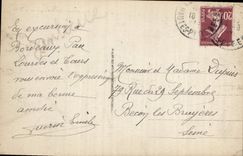 En excursion à
Bordeaux Pau
Lourdes et
vous envoie l'expression
de ma bonne
amitié
Monsieur et Madame Dupuis
Rue du 4 Septembre
Becon les Bruyères
Seine
20